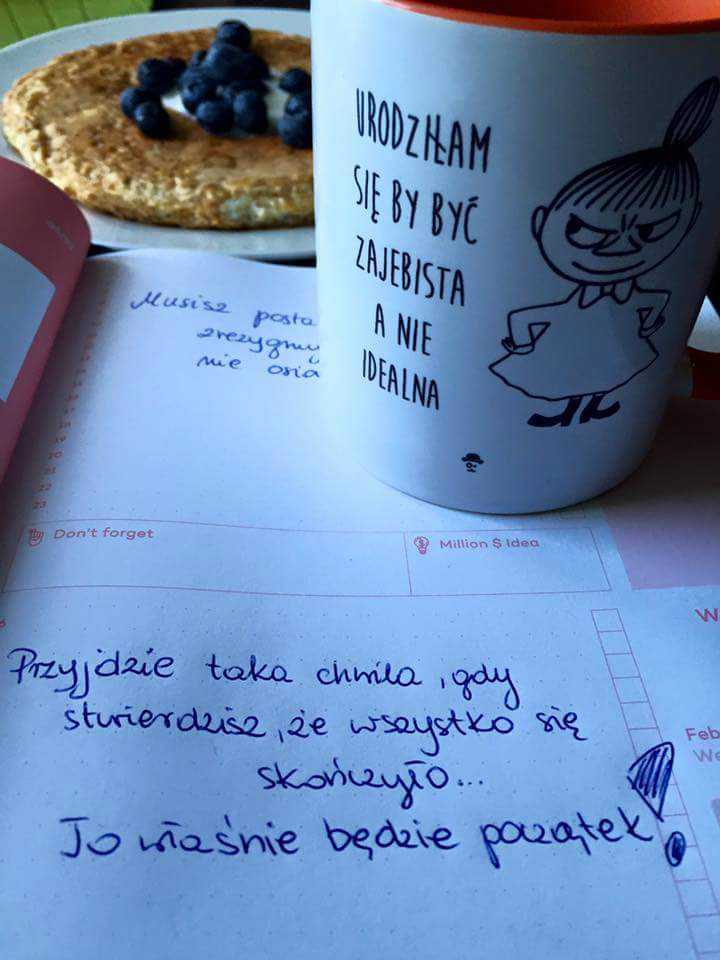 URODZIŁAM
SIĘ BY BYĆ
ZAJEBISTA
A NIE
IDEALNA
Musisz
nie
18
19
20
21
22
23
Don't forget
Million $ Idea
Przyjdzie taka chwila, gdy
stwierdzisz, że wszystko się
skończyło...
To właśnie będzie początek!